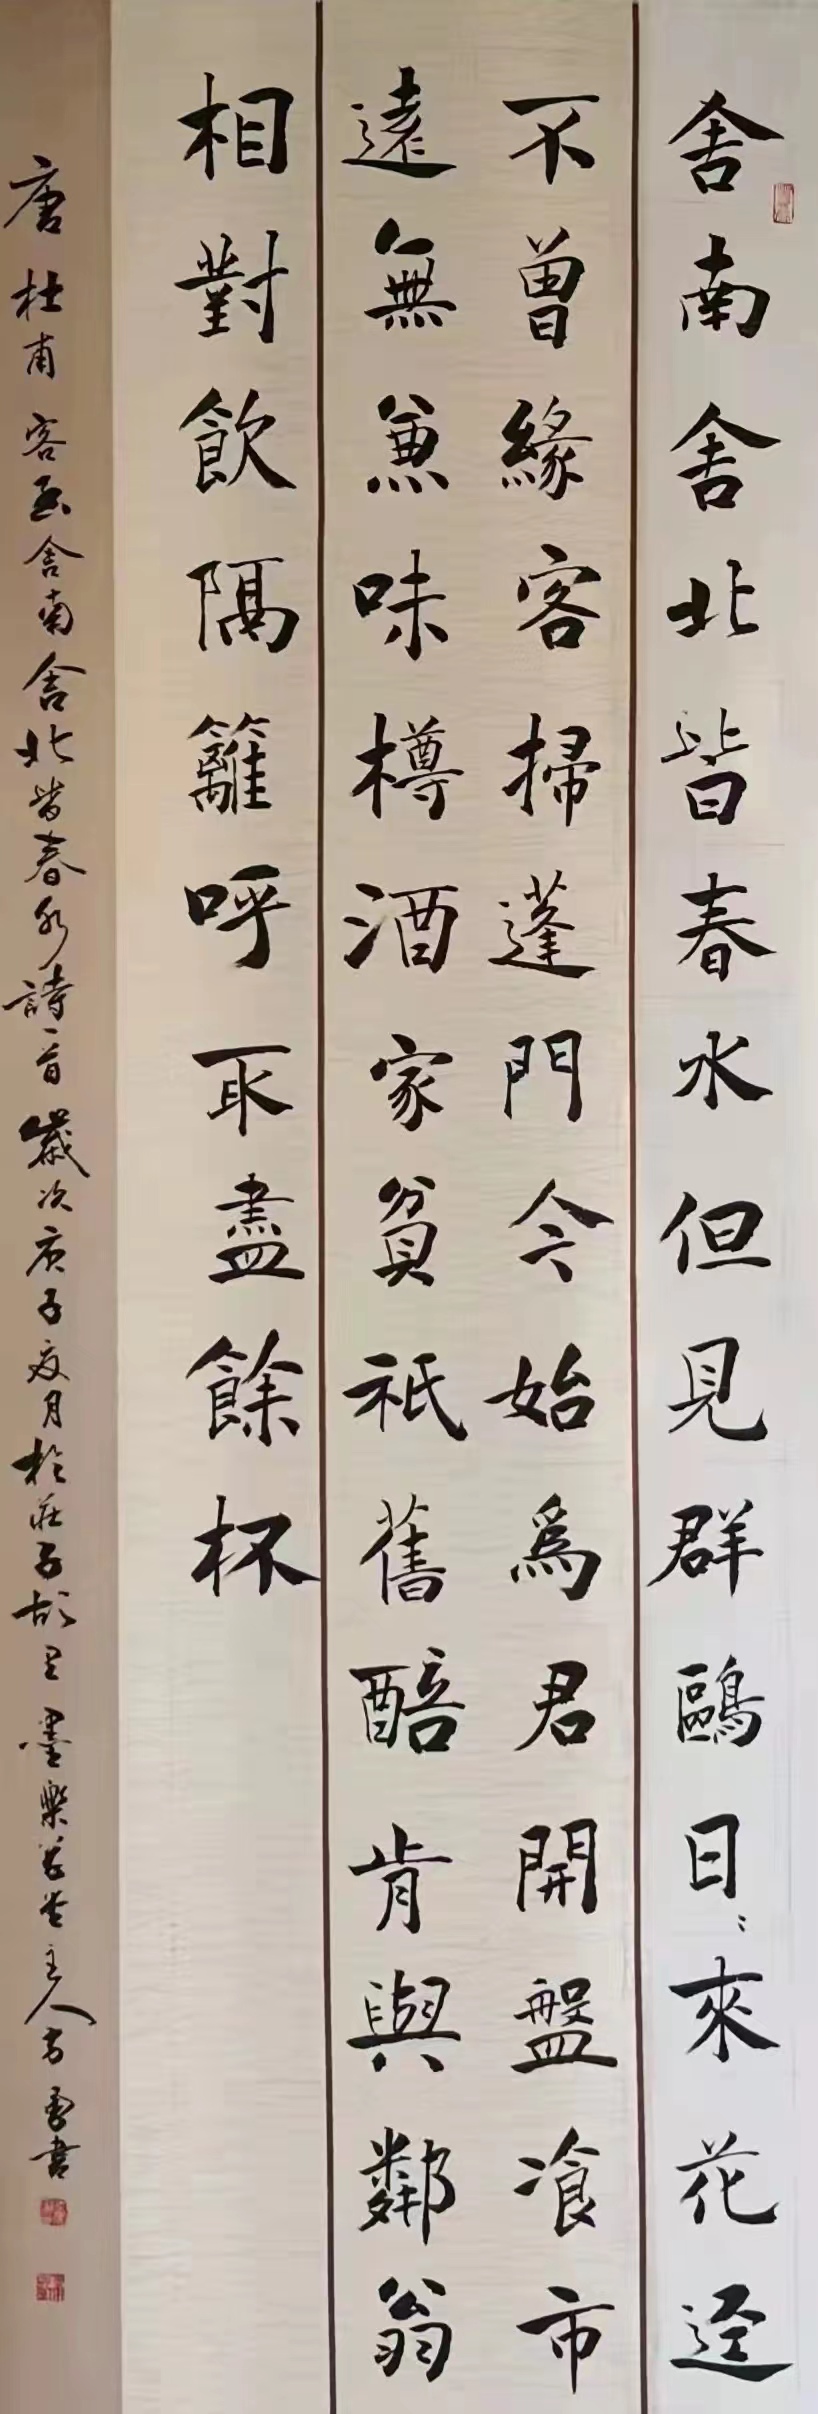 舍南舍北皆春水但見群鷗日〻來花迳
不曾緣客掃蓬門今始為君開盤飡市
遠無兼味樽酒家貧祇舊醅肯與鄰翁
相對飲隔籬呼取盡餘杯
唐杜甫客至舍南舍北皆春水詩一首歲次庚子夏月於莊子故里墨樂草堂主人方書